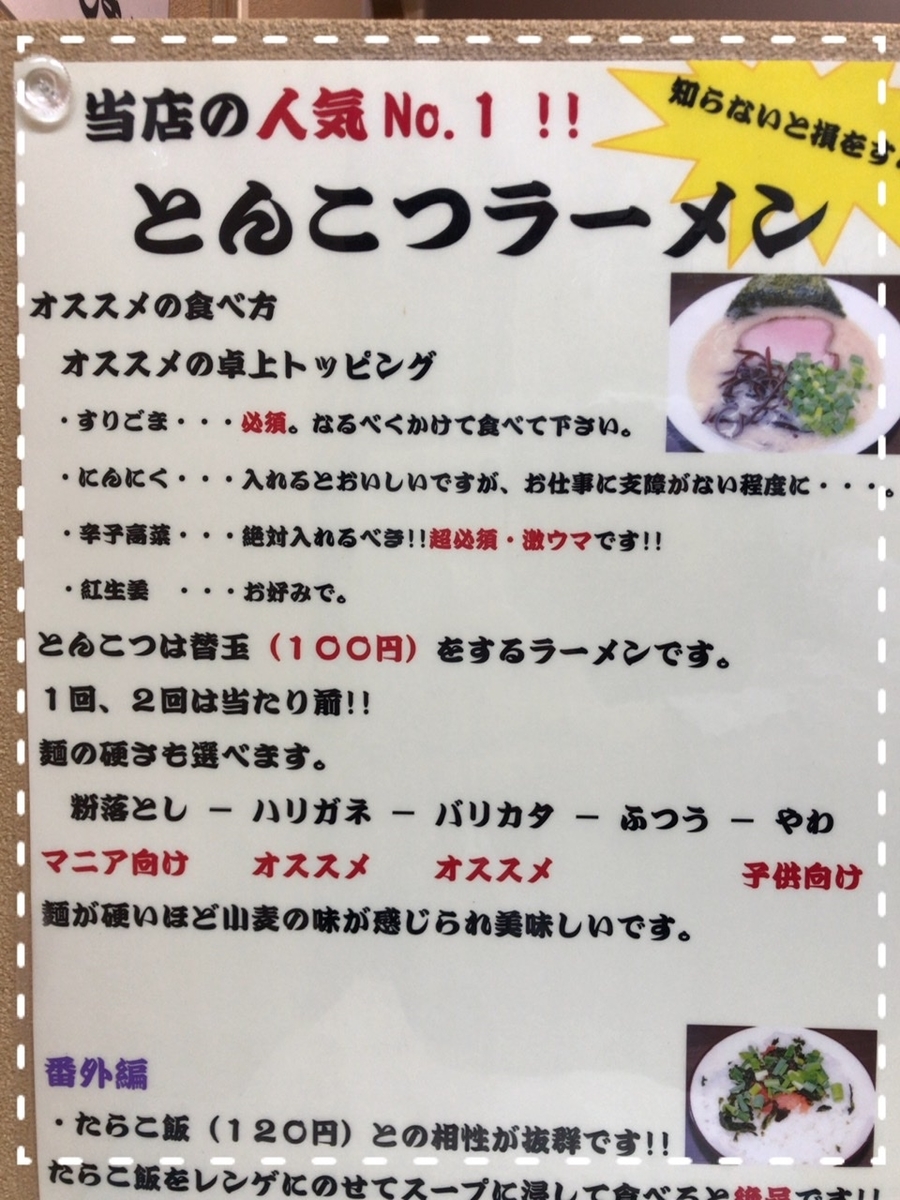 当店の人気No.1 !!
知らないと損をす
とんこつラーメン
オススメの食べ方
オススメの卓上トッピング
・すりごま・・・必須。なるべくかけて食べて下さい。
・にんにく・・・入れるとおいしいですが、お仕事に支障がない程度に・・・。
・辛子高菜・・・絶対入れるべき!!超必須・激ウマです!!
・紅生姜 ・・・お好みで。
とんこつは替玉（１００円）をするラーメンです。
１回、２回は当たり前!!
麺の硬さも選べます。
粉落とし － ハリガネ － バリカタ － ふつう － やわ
マニア向け オススメ オススメ 子供向け
麺が硬いほど小麦の味が感じられ美味しいです。
番外編
・たらこ飯（１２０円）との相性が抜群です!!
たらこ飯をレンゲにのせてスープに浸して食べると絶品です!!